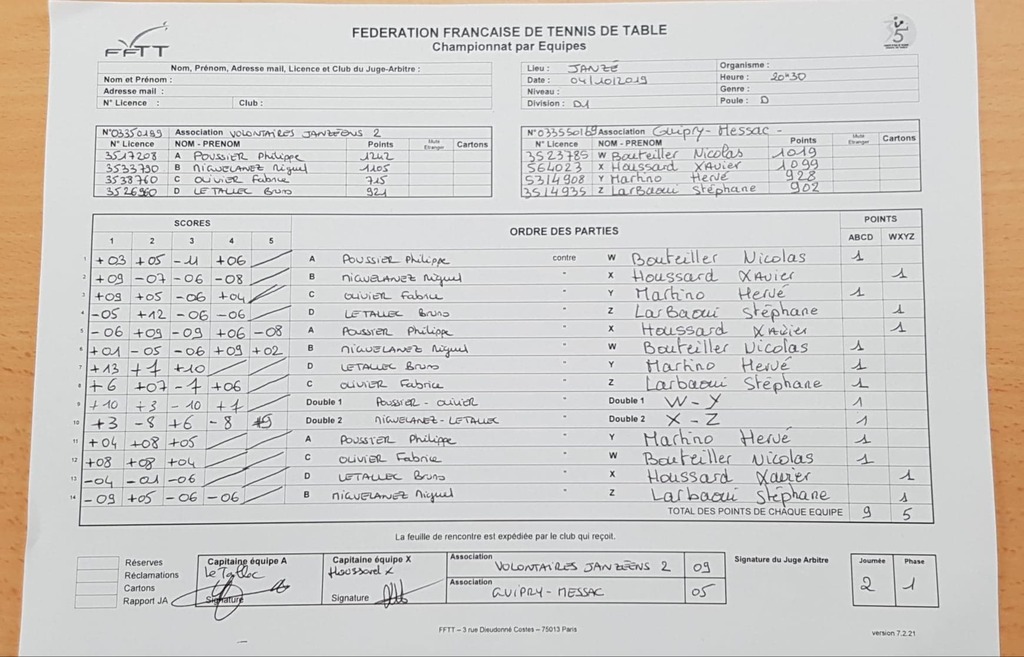 FFTT
FEDERATION FRANCAISE DE TENNIS DE TABLE
Championnat par Equipes
Nom, Prénom, Adresse mail, Licence et Club du Juge-Arbitre :
Nom et Prénom :
Adresse mail :
N° Licence : Club :
Lieu : JANZÉ Organisme :
Date : 04/10/2019 Heure : 20H30
Niveau : Genre :
Division : D1 Poule : D
N°03350189 Association VOLONTAIRES JANZÉENS 2
N° Licence NOM - PRENOM Points Muté Etranger Cartons
3517208 A POUSSIER Philippe 1242
3533790 B MIGUELANEZ Miguel 1105
3538760 C OLIVIER Fabrice 715
3526960 D LE TALLEC Bruno 921
N°033550169 Association Guipry-Messac -
N° Licence NOM - PRENOM Points Muté Etranger Cartons
3523785 W Bouteiller Nicolas 1019
564023 X Houssard XAvier 1099
5314908 Y Martino Hervé 928
3514935 Z LarBaoui Stéphane 902
SCORES ORDRE DES PARTIES POINTS
1 2 3 4 5 ABCD WXYZ
1 +03 +05 -11 +06 A POUSSIER Philippe contre W Bouteiller Nicolas 1
2 +09 -07 -06 -08 B MIGUELANEZ Miguel " X Houssard XAvier 1
3 +09 +05 -06 +04 C OLIVIER Fabrice " Y Martino Hervé 1
4 -05 +12 -06 -06 D LETALLEC Bruno " Z LarBaoui Stéphane 1
5 -06 +09 -09 +06 -08 A POUSSIER Philippe " X Houssard XAvier 1
6 +01 -05 -06 +09 +02 B MIGUELANEZ Miguel " W Bouteiller Nicolas 1
7 +13 +7 +10 D LETALLEC Bruno " Y Martino Hervé 1
8 +6 +07 -7 +06 C OLIVIER Fabrice " Z Larbaoui Stéphane 1
9 +10 +3 -10 +7 Double 1 POUSSIER - OLIVIER Double 1 W-Y 1
10 +3 -8 +6 -8 Double 2 MIGUELANEZ-LETALLEC " Double 2 X-Z 1
11 +04 +08 +05 A POUSSIER Philippe " Y Martino Hervé 1
12 +08 +08 +04 C OLIVIER Fabrice " W Bouteiller Nicolas 1
13 -04 -01 -06 D LETALLEC Bruno " X Houssard Xavier 1
14 -09 +05 -06 -06 B MIGUELANEZ Miguel " Z Larbaoui Stéphane 1
TOTAL DES POINTS DE CHAQUE EQUIPE 9 5
La feuille de rencontre est expédiée par le club qui reçoit.
Réserves
Réclamations
Cartons
Rapport JA
Capitaine équipe A
Le Tallec
Signature
Capitaine équipe X
Houssard X
Signature
Association VOLONTAIRES JANZÉENS 2 09
Association GUIPRY-MESSAC 05
Signature du Juge Arbitre
Journée Phase
2 1
FFTT – 3 rue Dieudonné Costes – 75013 Paris
version 7.2.21